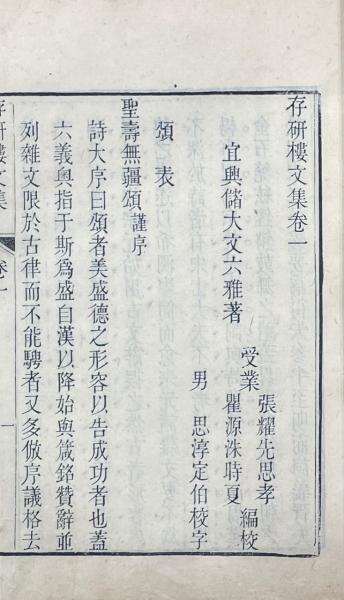 存研樓文集卷一
宜興儲大文六雅著
受業
張耀先思孝
瞿源洙時夏
編校
男
思淳定伯校字
頌 表
聖壽無疆頌謹序
詩大序曰頌者美盛德之形容以告成功者也蓋
六義輿指于斯爲盛自漢以降始與箴銘贊辭並
列雜文限於古律而不能騁者又多倣序議格去
存研樓文集
卷一
一